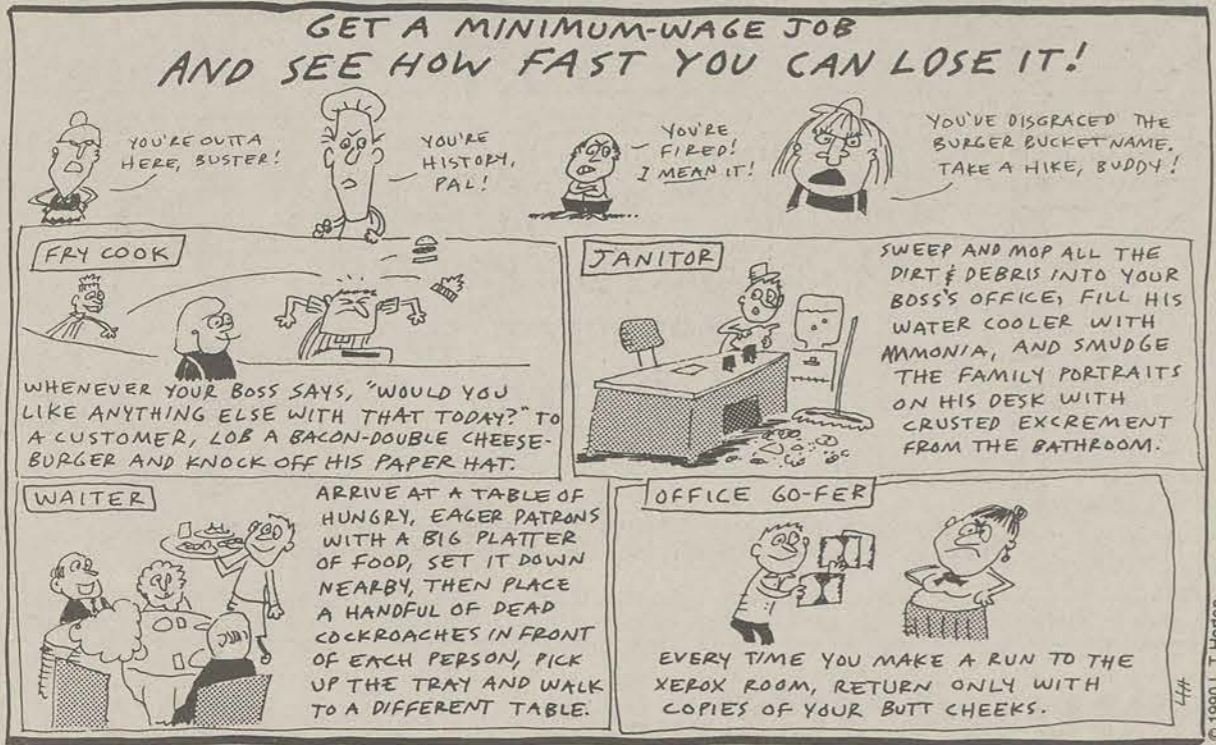 GET A MINIMUM-WAGE JOB
AND SEE HOW FAST YOU CAN LOSE IT!
YOU'RE OUTTA
HERE, BUSTER!
YOU'RE
HISTORY,
PAL!
YOU'RE
FIRED!
I MEAN IT!
YOU'VE DISGRACED THE
BURGER BUCKET NAME.
TAKE A HIKE, BUDDY!
FRY COOK
WHENEVER YOUR BOSS SAYS, "WOULD YOU
LIKE ANYTHING ELSE WITH THAT TODAY?" TO
A CUSTOMER, LOB A BACON-DOUBLE CHEESE-
BURGER AND KNOCK OFF HIS PAPER HAT.
JANITOR
SWEEP AND MOP ALL THE
DIRT & DEBRIS INTO YOUR
BOSS'S OFFICE, FILL HIS
WATER COOLER WITH
AMMONIA, AND SMUDGE
THE FAMILY PORTRAITS
ON HIS DESK WITH
CRUSTED EXCREMENT
FROM THE BATHROOM.
WAITER
ARRIVE AT A TABLE OF
HUNGRY, EAGER PATRONS
WITH A BIG PLATTER
OF FOOD, SET IT DOWN
NEARBY, THEN PLACE
A HANDFUL OF DEAD
COCKROACHES IN FRONT
OF EACH PERSON, PICK
UP THE TRAY AND WALK
TO A DIFFERENT TABLE.
OFFICE GO-FER
EVERY TIME YOU MAKE A RUN TO THE
XEROX ROOM, RETURN ONLY WITH
COPIES OF YOUR BUTT CHEEKS.
LTH
© 1990 L.T. Horton